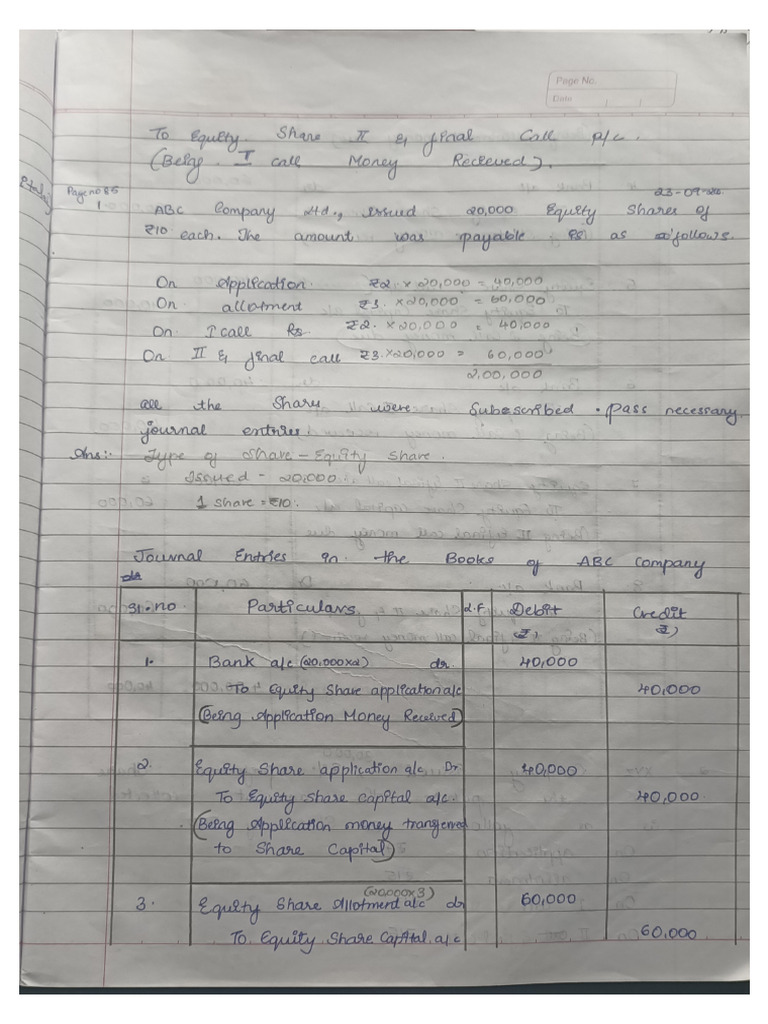 Page No.
Date
To Equity Share II & final Call A/c.
(Being I call Money Recieved).
Page no 85
23-09-
1
ABC Company Ltd., issued 20,000 Equity Shares of
₹10 each. The amount was payable as follows.
On Application. ₹2. × 20,000 = 40,000
On allotment ₹3. × 20,000 = 60,000
On I call Rs ₹2. × 20,000 = 40,000
On II & final call ₹3. × 20,000 = 60,000
2,00,000
all the Share were Subescribed. Pass necessary
journal entries.
Ans:- Type of Share - Equity Share.
Issued - 20,000
1 Share = ₹10.
Journal Entries in the Books of ABC Company
Sl.no Particulars L.F Debit Credit
₹ ₹)
1. Bank a/c (20,000×2) dr. 40,000
To Equity Share application a/c 40,000
(Being Application Money Received)
2. Equity Share application a/c Dr 40,000
To Equity Share Capital a/c. 40,000
(Being Application money transferred
to Share Capital)
(20,000×3)
3. Equity Share Allotment a/c dr 60,000
To Equity Share Capital a/c 60,000